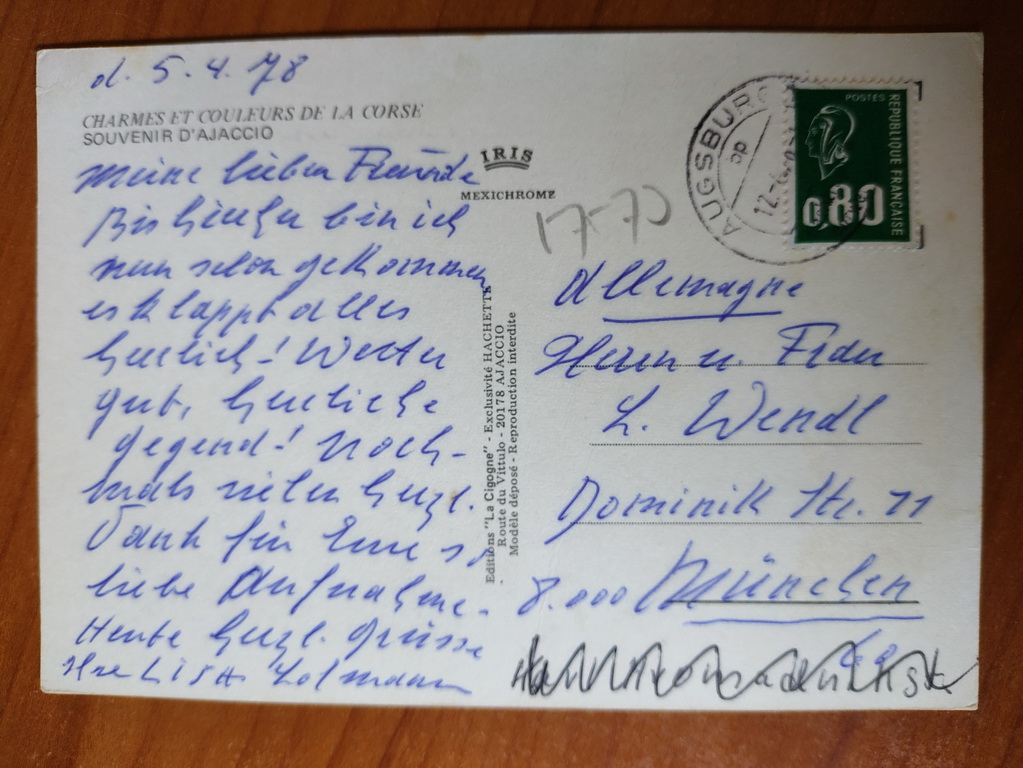 d. 5.4.78
CHARMES ET COULEURS DE LA CORSE
SOUVENIR D'AJACCIO
Meine lieben Freunde
Bis hierher bin ich
nun schon gekommen
es klappt alles
herrlich! Wetter
gut, herrliche
gegend! Noch-
mals vielen herzl.
Dank für Eure so
liebe Aufnahme.
Heute herzl. Grüsse
IRIS
MEXICHROME
Editions "La Cigogne" - Exclusivité HACHETTE
- Route du Vittulo - 20178 AJACCIO
Modèle déposé - Reproduction interdite
17-70
AUGSBURG
REPUBLIQUE FRANÇAISE
POSTES
0,80
Allemagne
Herrn u. Frau
L. Wendl
Dominik Str. 11
8.000 München